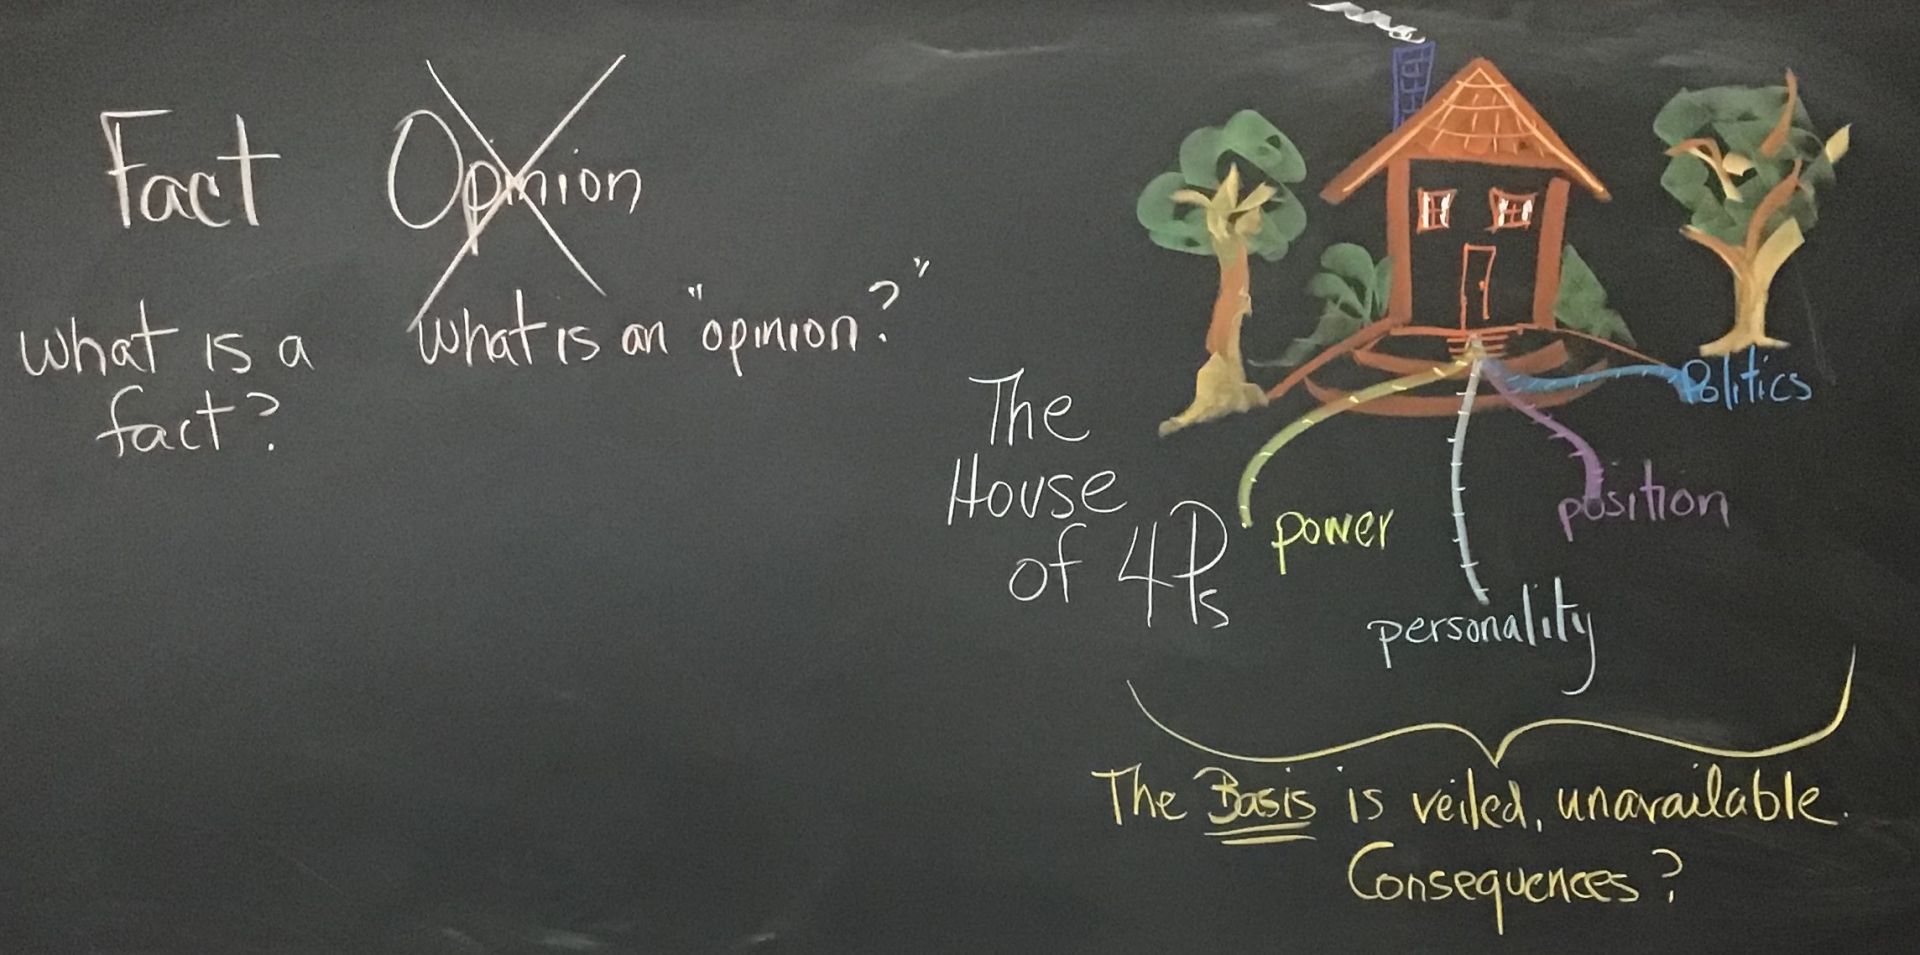 Fact Opinion
what is a
fact?
what is an "opinion?"
The
House
of 4Ps
Politics
position
power
personality
The Basis is veiled, unavailable.
Consequences?